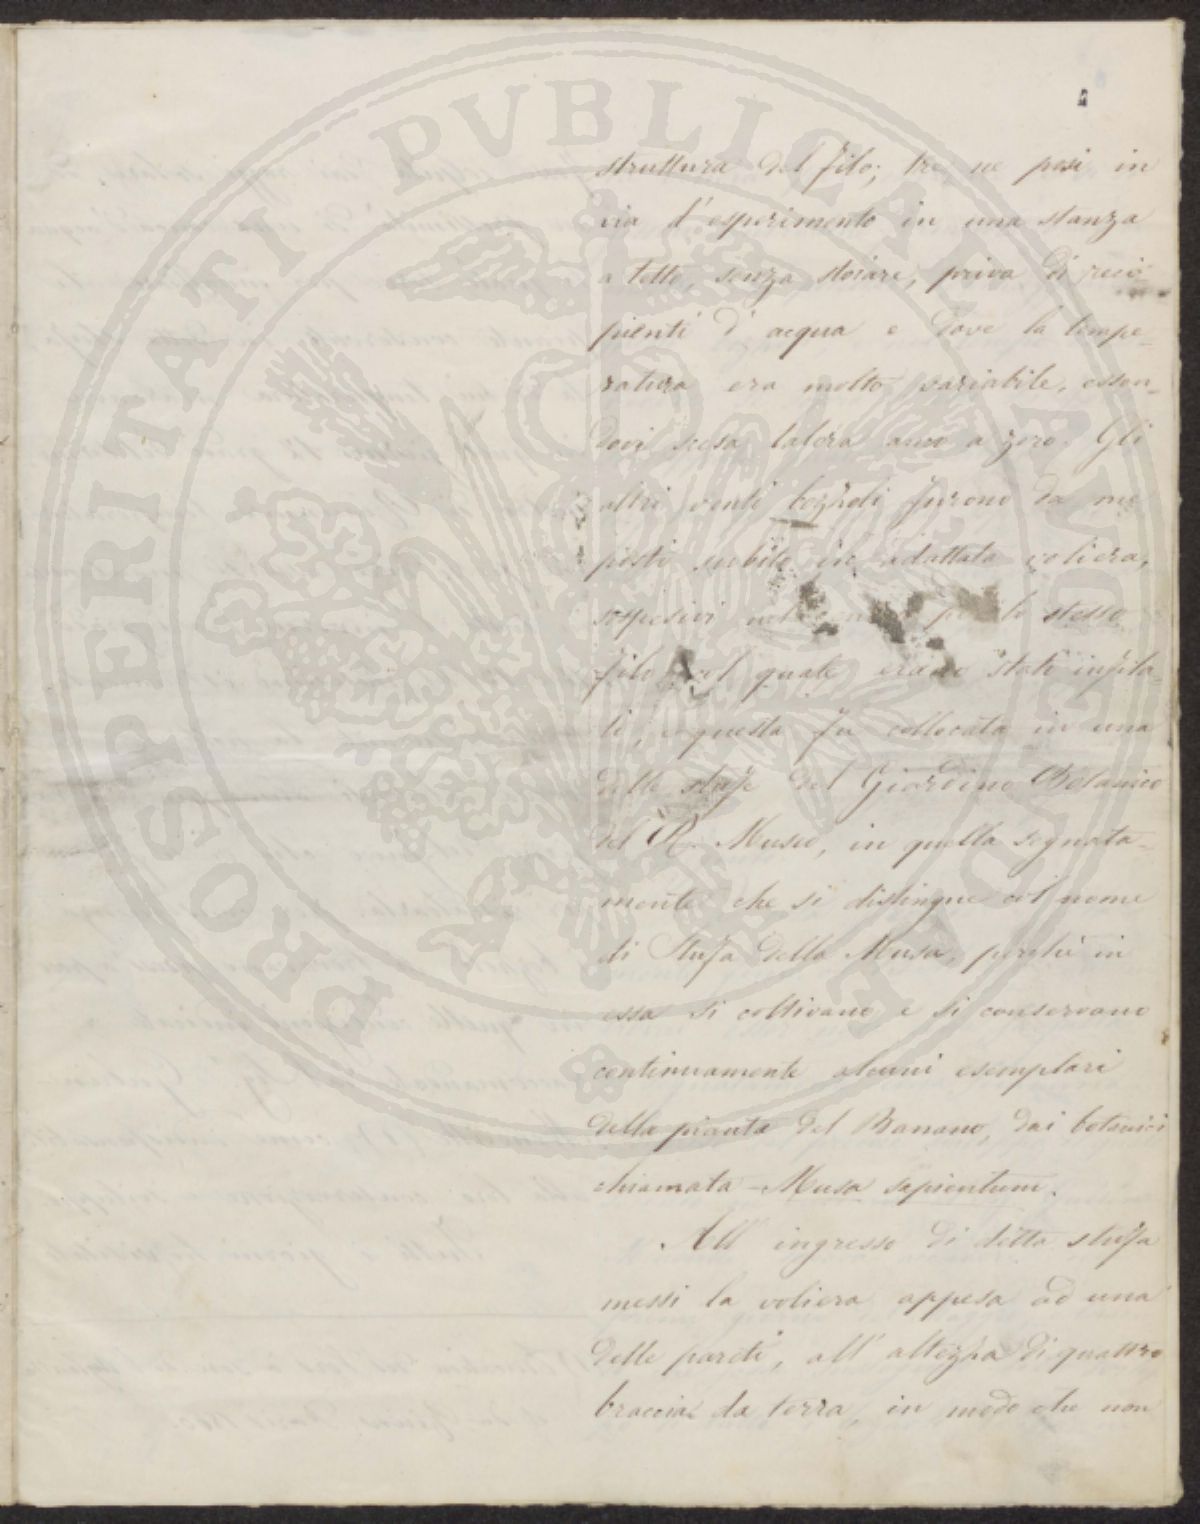 struttura del filo; tre ne posi in
via d'esperimento in una stanza
a tetto, senza stoiare, priva di reci-
pienti d'acqua e dove la tempe-
ratura era molto variabile, essen-
dovi scesa talora anco a zero. Gli
altri venti bozzoli furono da me
posti subito in adattata voliera,
sospesivi lo stesso
filo col quale erano stati infila-
ti, e questa fu collocata in una
delle stufe del Giardino Botanico
del R. Museo, in quella segnata-
mente che si distingue col nome
di Stufa della Musa, perchè in
essa si coltivano e si conservano
continuamente alcuni esemplari
della pianta del Banano, dai botanici
chiamata Musa sapientum.
All'ingresso di detta stufa
messi la voliera appesa ad una
delle pareti, all'altezza di quattro
braccia da terra, in modo che non
PROSPERITATI PVBLICAE AVGENDAE